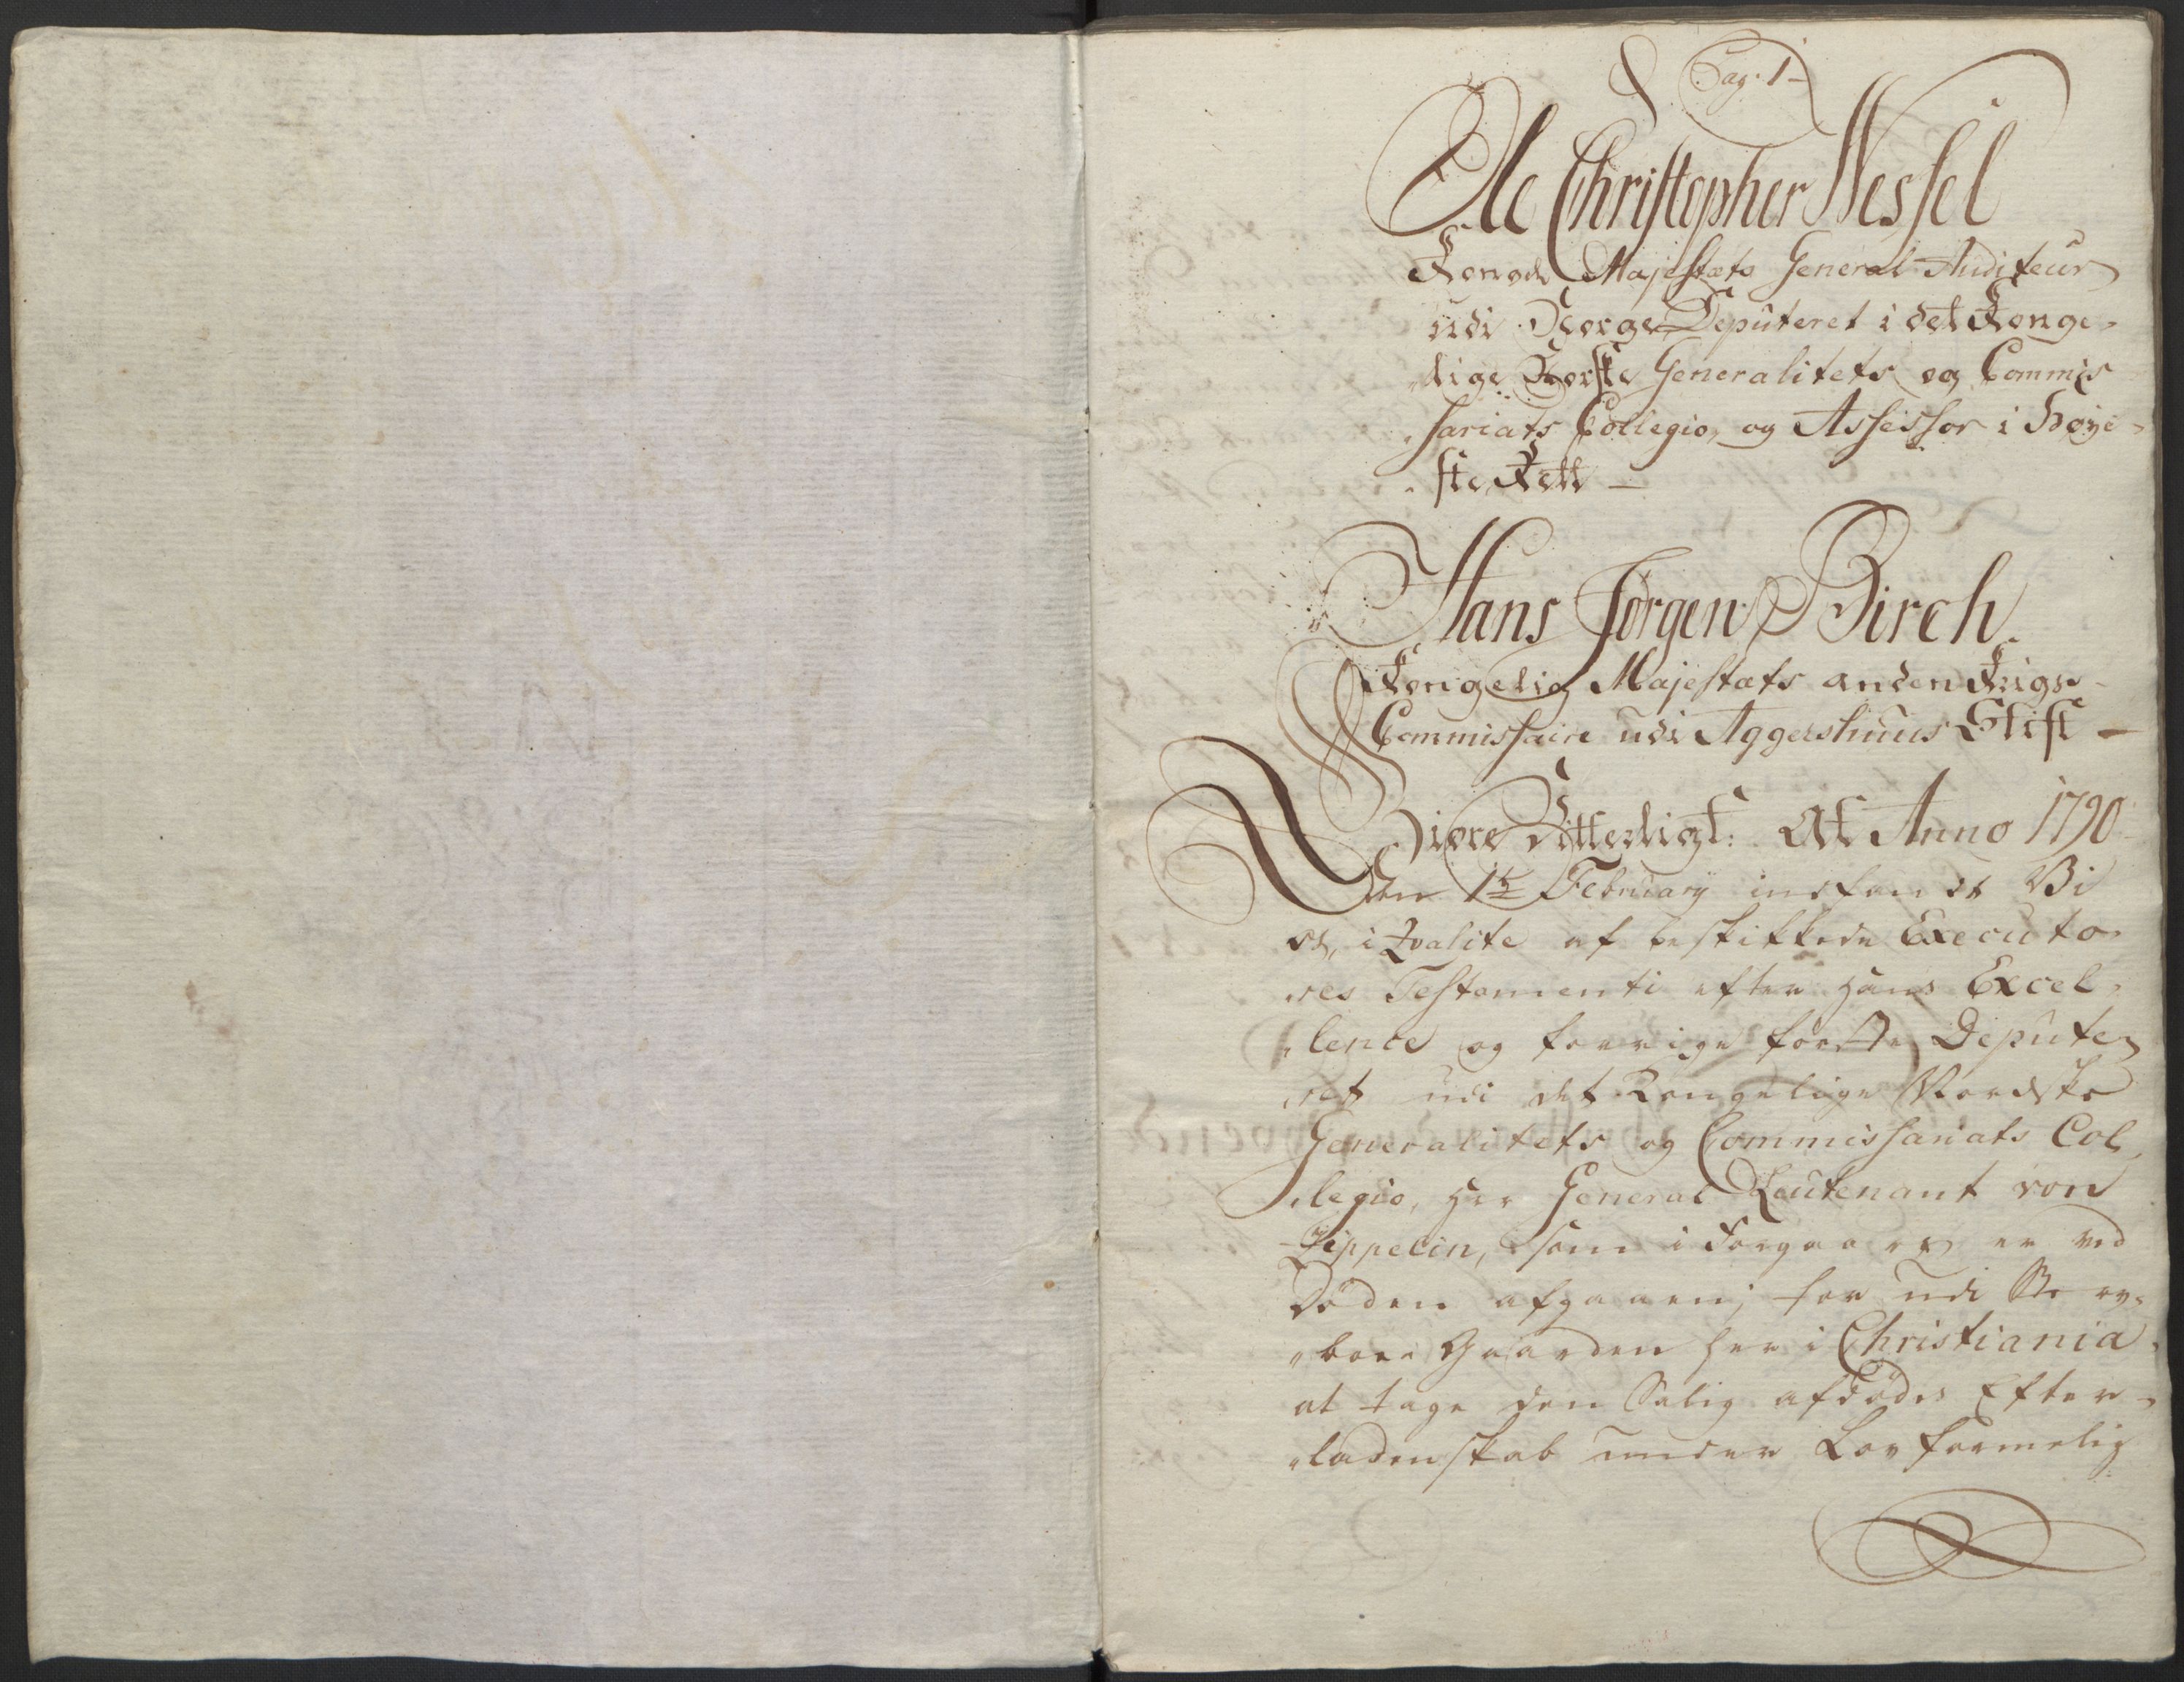 Pag: 1
Ole Christopher Wessel
Kongel Majestæts General Auditeur
udi Norge Deputeret i det Konge-
lige Norske Generalitets og Commis
sariats Collegio, og Assessor i Høye-
ste Rett —
Hans Jørgen Birch.
Kongelig Majestæts anden Krigs-
Commissaire udi Aggershuus Stift —
Giøre Vitterligt: At Anno 1790
den 1te February indfandt Vi
os, i Qvalite af beskikkede Executo
res Testamenti efter Hans Excel-
lence og forrige første Depute
ret udi det Kongelige Nordske
Generalitets og Commissariats Col
legio, Her General Leutenant von
Zeppelin, som i Forgaars er ved
Døden afgaaen; for udi Sterv-
boe Gaarden her i Christiania
at tage den Salig afdødes Efter-
ladenskab under Lov formelig